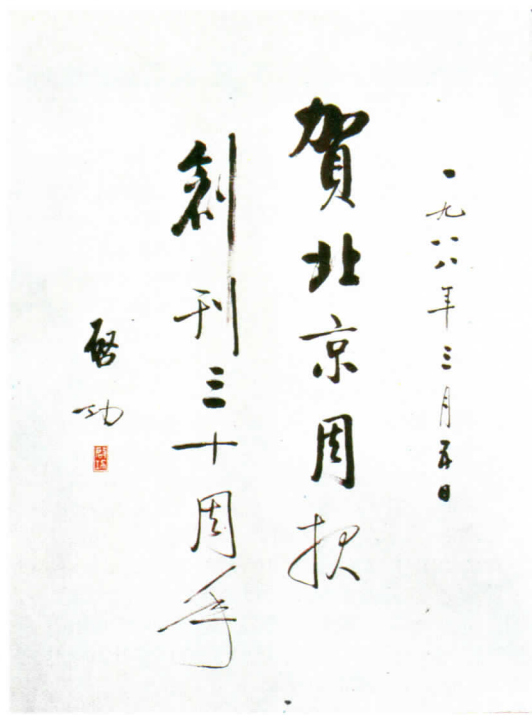 一九八八年三月五日
賀北京周报
創刊三十周年
啓功